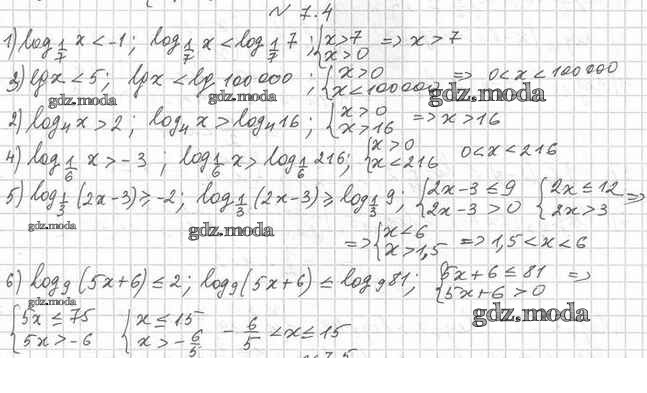 № 7.4
1) log_{1/7} x < -1; log_{1/7} x < log_{1/7} 7; { x > 7 x > 0 => x > 7
3) lg x < 5; lg x < lg 100000; { x > 0 x < 100000 => 0 < x < 100000
gdz.moda gdz.moda gdz.moda
2) log_4 x > 2; log_4 x > log_4 16; { x > 0 x > 16 => x > 16
4) log_{1/6} x > -3; log_{1/6} x > log_{1/6} 216; { x > 0 x < 216 0 < x < 216
5) log_{1/3} (2x-3) ≥ -2; log_{1/3} (2x-3) ≥ log_{1/3} 9; { 2x-3 ≤ 9 2x-3 > 0 { 2x ≤ 12 2x > 3 =>
gdz.moda gdz.moda
=> { x < 6 x > 1,5 => 1,5 < x < 6
6) log_9 (5x+6) ≤ 2; log_9 (5x+6) ≤ log_9 81; { 5x+6 ≤ 81 5x+6 > 0 =>
gdz.moda gdz.moda
{ 5x ≤ 75 5x > -6 { x ≤ 15 x > -6/5 -6/5 < x ≤ 15